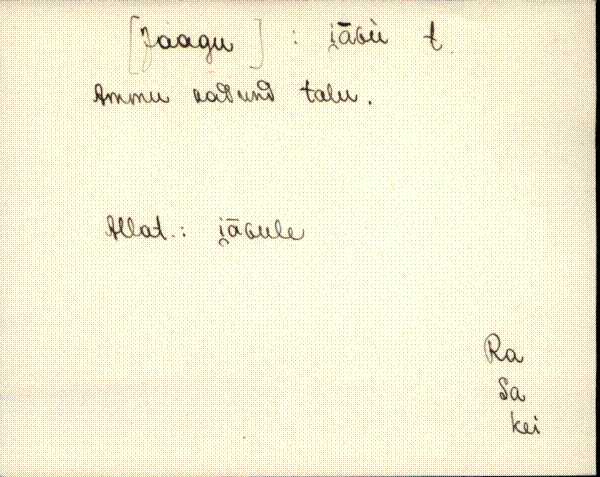 [Jaagu] : i̯āɢù t.
Ammu kadund talu.
Allat.: i̯āɢule
Ra
Sa
Kei